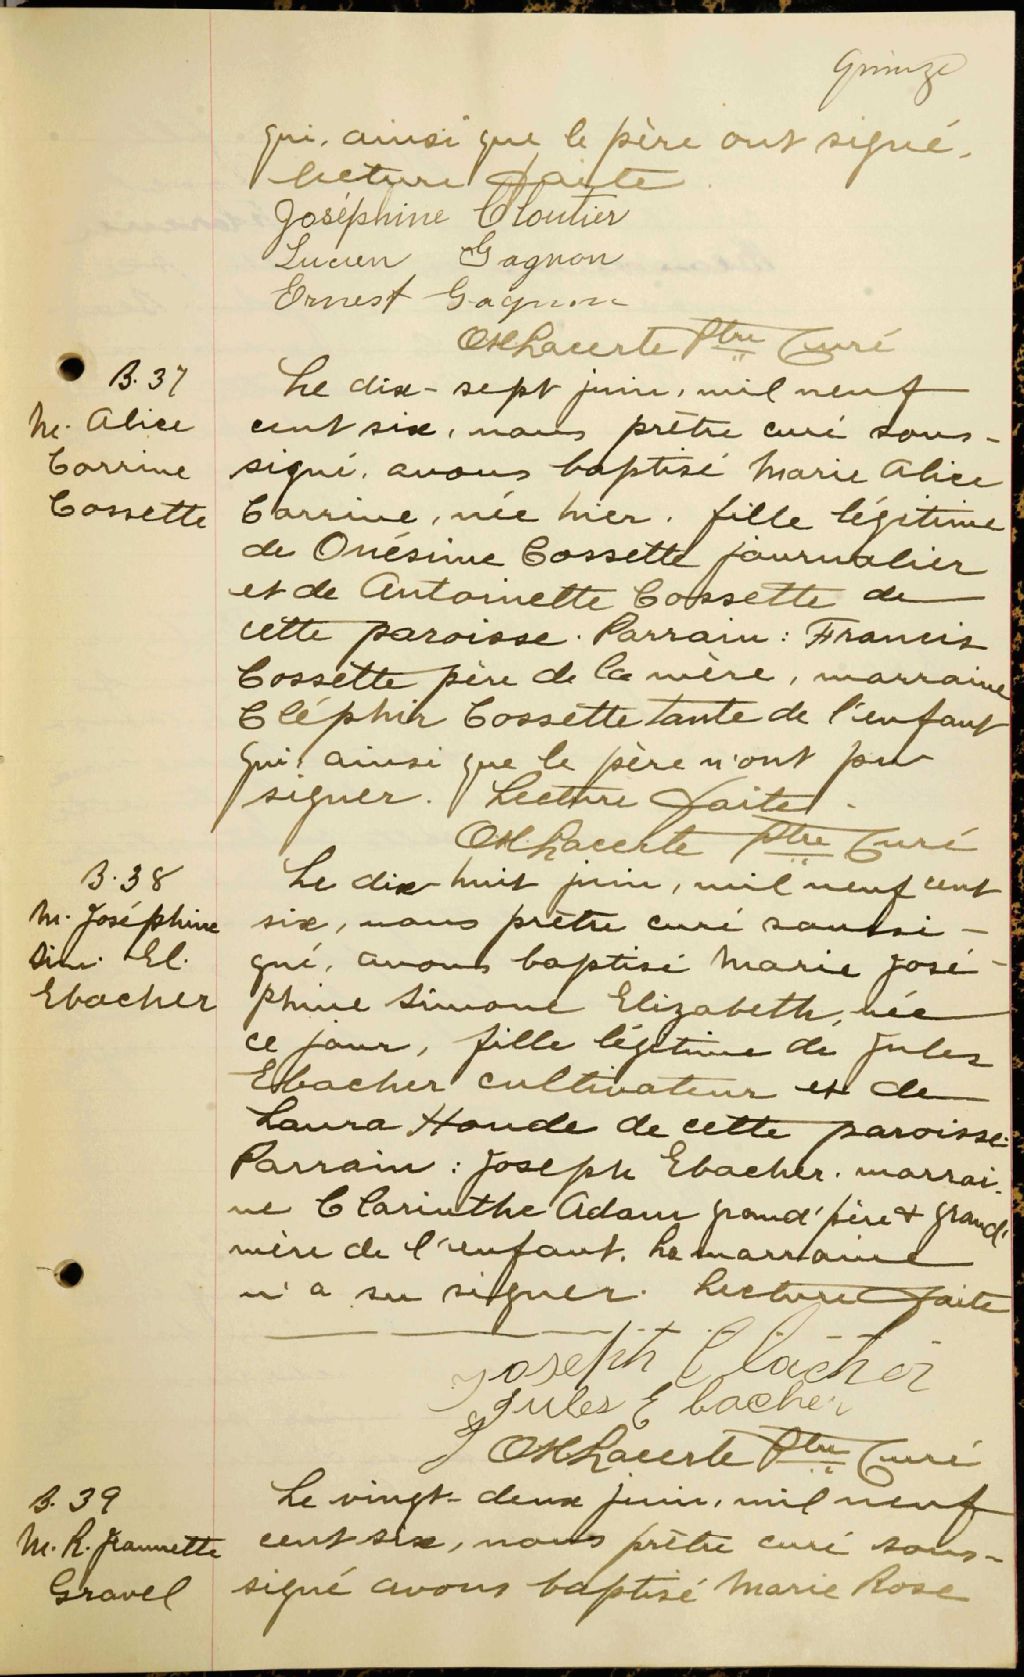 Quinze
qui, ainsi que le père ont signé.
Lecture faite
Joséphine Cloutier
Lucien Gagnon
Ernest Gagnon
OHLacerte Ptre Curé
B. 37
M. Alice
Corrine
Cossette
Le dix-sept juin, mil neuf
cent six, nous prêtre curé sous-
signé, avons baptisé Marie Alice
Corrine, née hier, fille légitime
de Onésime Cossette journalier
et de Antoinette Cossette de
cette paroisse. Parrain : Francis
Cossette père de la mère, marraine
Cléphir Cossette tante de l'enfant
qui, ainsi que le père n'ont pu
signer. Lecture faite.
OHLacerte Ptre Curé
B. 38
M. Joséphine
Sim. El.
Ebacher
Le dix-huit juin, mil neuf cent
six, nous prêtre curé soussi-
gné, avons baptisé Marie José-
phine Simone Elizabeth, née
ce jour, fille légitime de Jules
Ebacher cultivateur et de
Laura Houde de cette paroisse.
Parrain : Joseph Ebacher, marrai-
ne Clarinthe Adam grand'père & grand'
mère de l'enfant. La marraine
n'a su signer. Lecture faite
Joseph Ebacher
Jules Ebacher
OHLacerte Ptre Curé
B. 39
M. R. Jeannette
Gravel
Le vingt-deux juin, mil neuf
cent six, nous prêtre curé sous-
signé avons baptisé Marie Rose